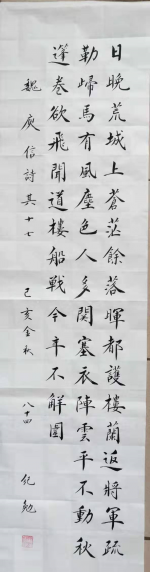 日晚荒城上蒼茫餘落暉都護樓蘭返將軍疏
勒歸馬有風塵色人多関塞衣陣雲平不動秋
蓬卷欲飛聞道樓船戰今年不解圍
魏庾信詩其十七 己亥金秋 八十四 化勉